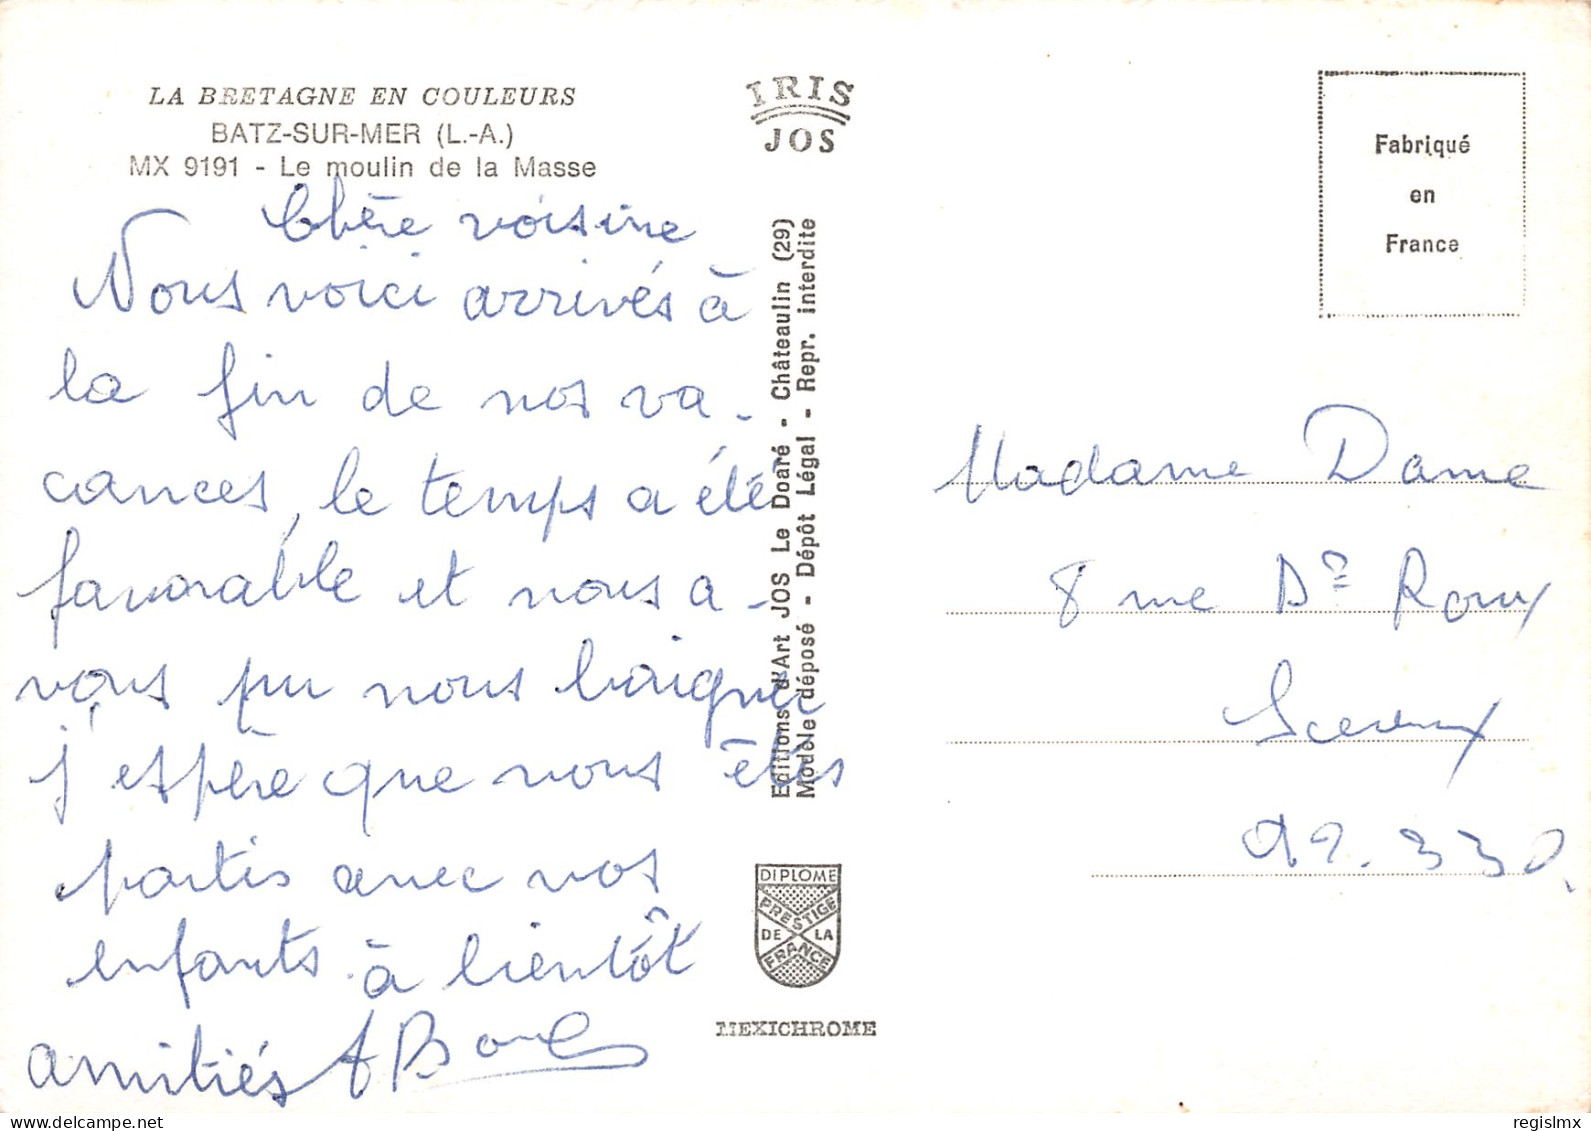 LA BRETAGNE EN COULEURS
BATZ-SUR-MER (L.-A.)
MX 9191 - Le moulin de la Masse
Chère voisine
Nous voici arrivés à
la fin de nos va-
cances, le temps a été
favorable et nous a-
vons pu nous baigner
j'espère que vous êtes
partis avec vos
enfants. à bientôt
amitiés A
IRIS
JOS
Editions d'Art JOS Le Doaré - Châteaulin (29)
Modèle déposé - Dépôt Légal - Repr. interdite
DIPLOME
PRESTIGE
DE LA
FRANCE
MEXICHROME
Fabriqué
en
France
Madame Dame
8 rue Dr Roux
Sceaux
92.330.
regislmx